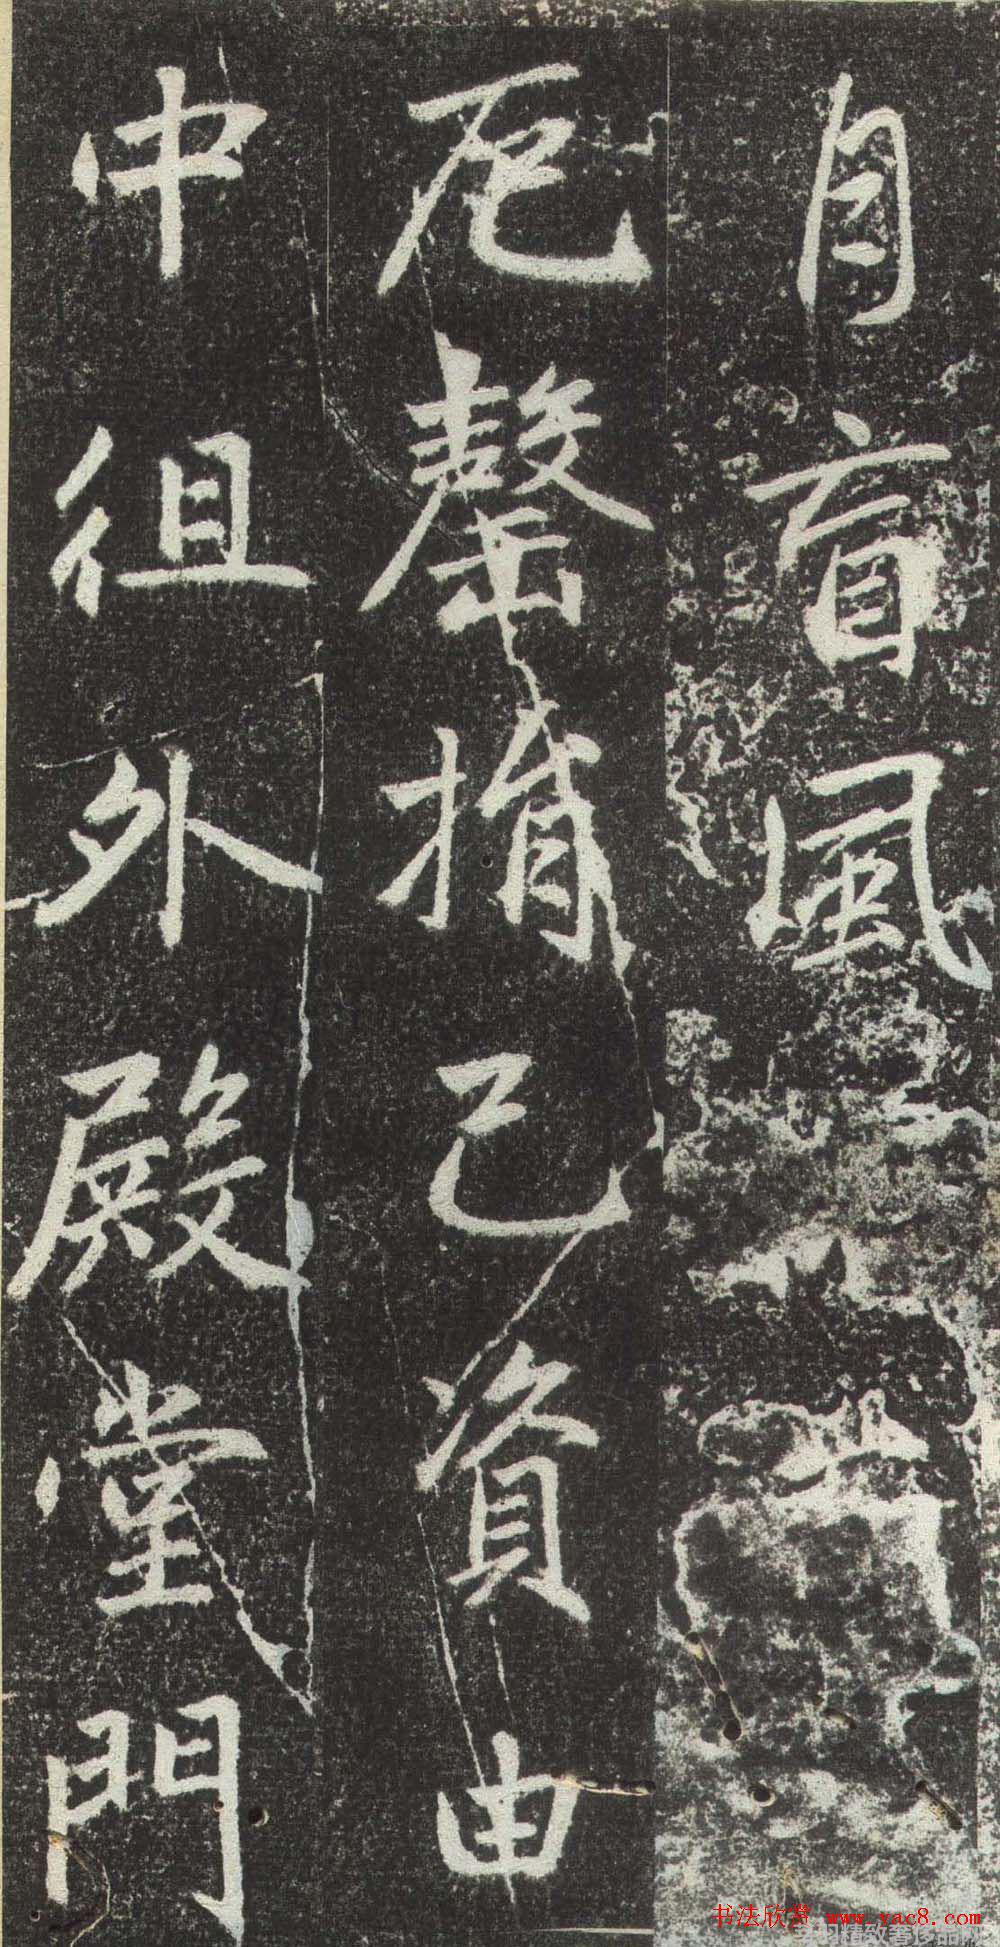 自盲風
厄罄捐己資由
中徂外殿堂門
书法欣赏 www.yac8.com